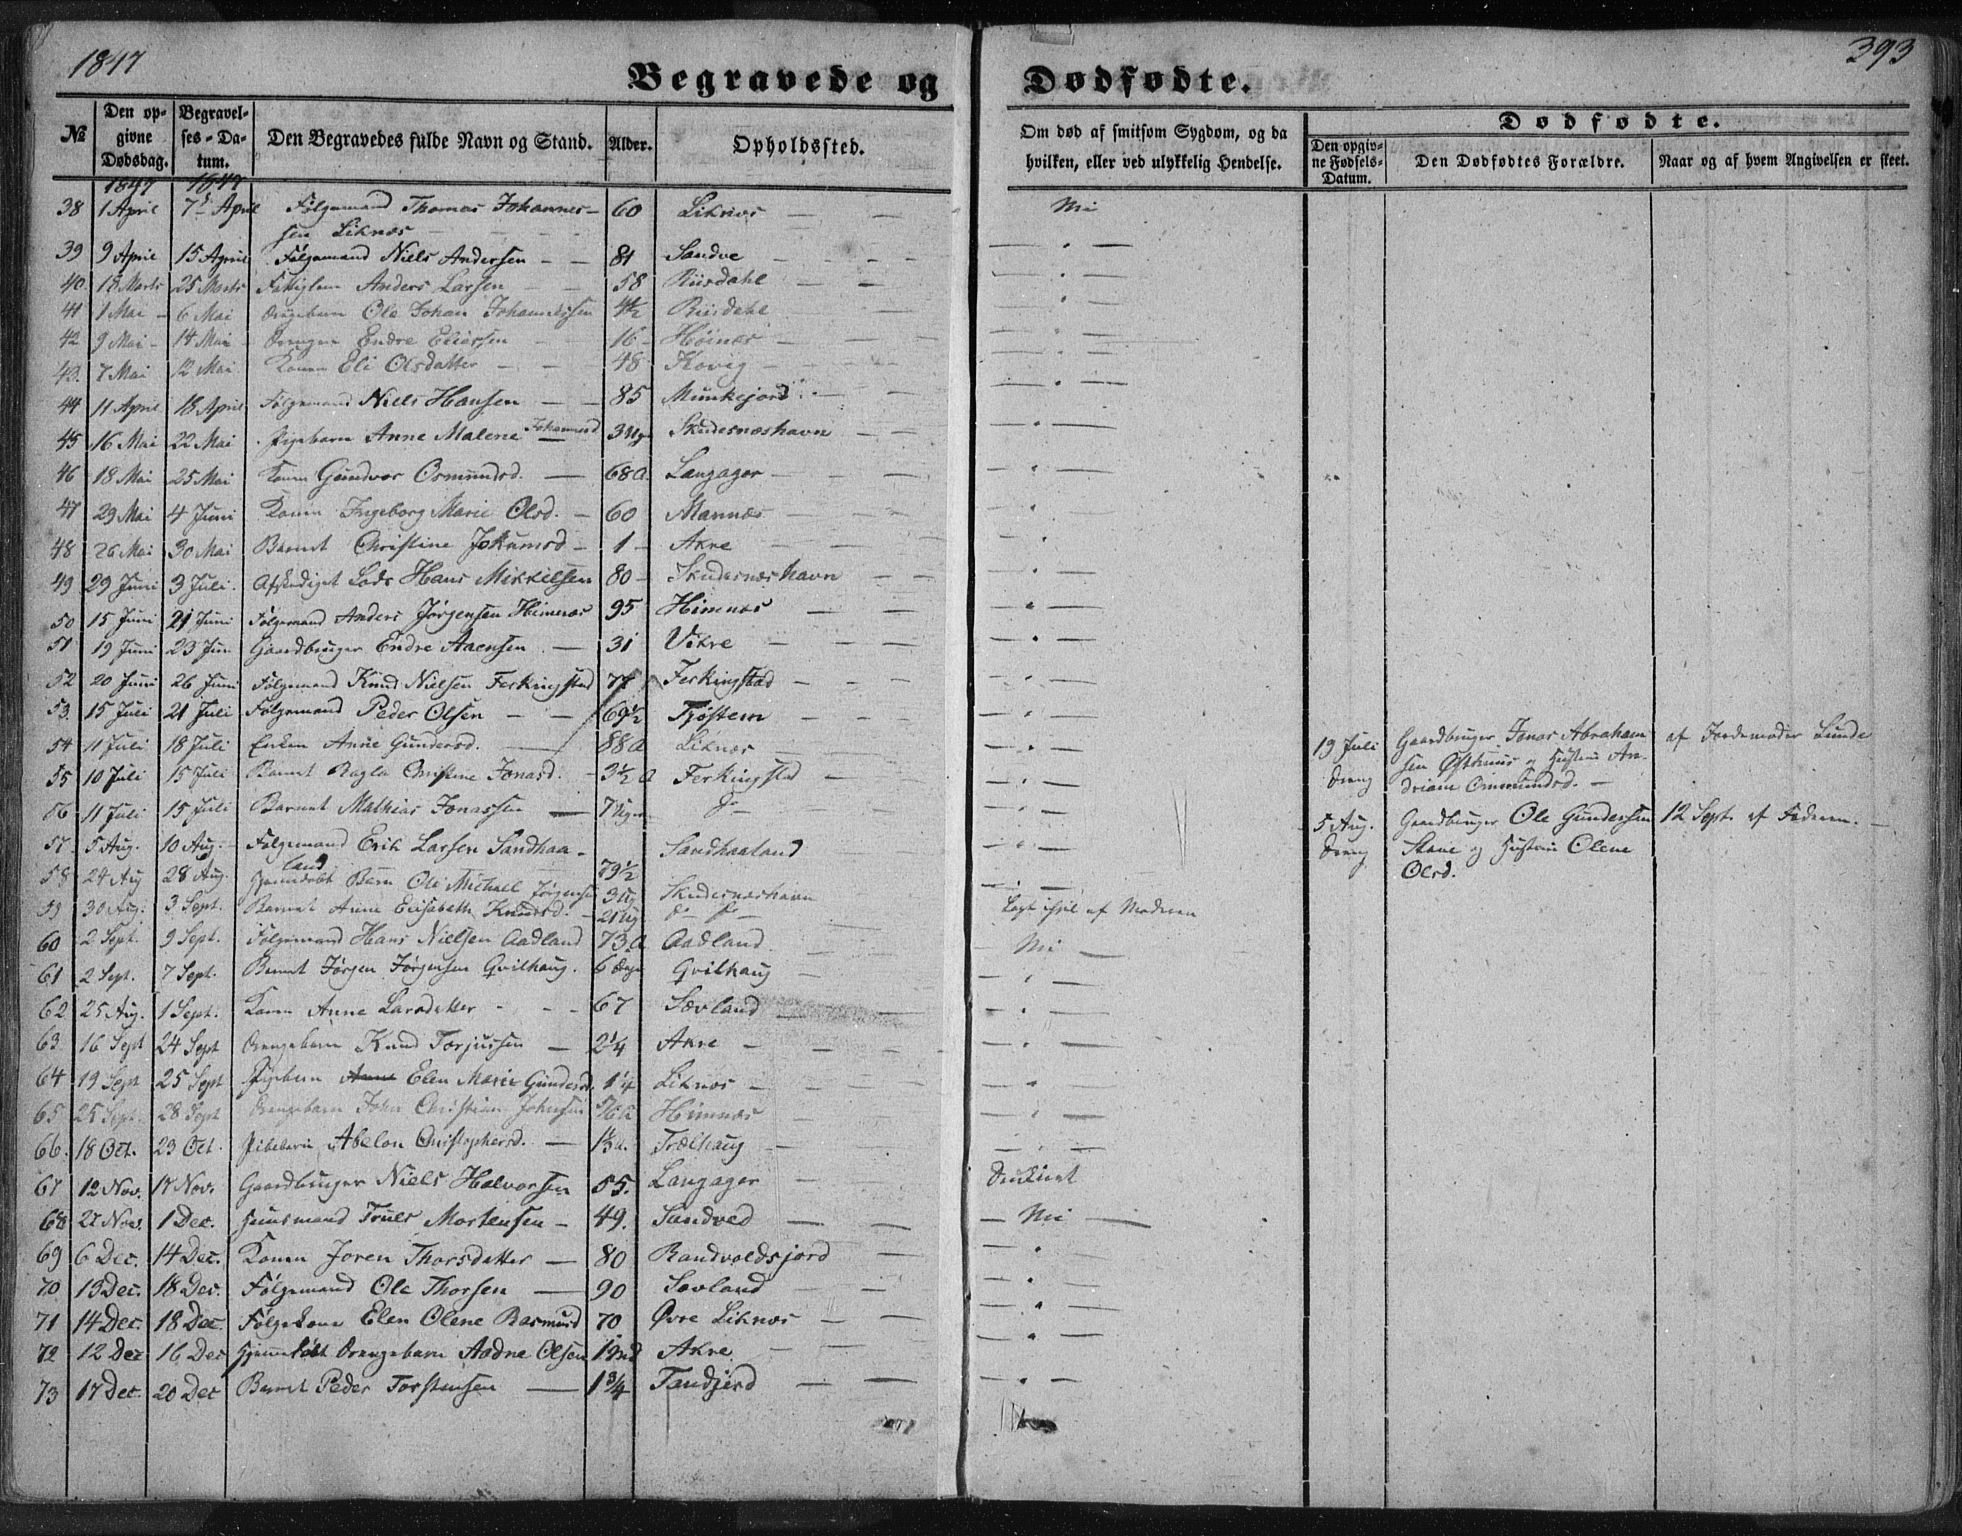 1847
393
Begravede og Dødfødte.
№
Den opgivne Dødsdag.
Begravelses-Datum.
Den Begravedes fulde Navn og Stand.
Alder.
Opholdssted.
Om død af smitsom Sygdom, og da hvilken, eller ved ulykkelig Hendelse.
Dødfødte.
Den opgivne Fødsels-Datum.
Den Dødfødtes Forældre.
Naar og af hvem Angivelsen er skeet.
1847 1847
38 1 April 7de April Følgemand Thomas Johannes- 60 Liknes — — Nei
sen Liknes — —
39 9 April 15 April Følgemand Niels Andersen — — 81 Sandve — — — " —
40 18 Marts 25 Marts Anders Larsen — — 58 Riisdahl — — — " —
41 1 Mai 6 Mai Drengebarn Ole Johan Johannessen 4½ Riisdahl — " —
42 9 Mai 14 Mai Drengen Endre Eliassen 16 Høines — — — " —
43. 7 Mai 12 Mai Konen Eli Olsdatter — — 48 Kovig — — — " —
44 11 April 18 April Følgemand Niels Hansen — — 85 Munkejord — — " —
45 16 Mai 22 Mai Pigebarn Anne Malene Johannesd 3 Ug. Skudesnæshavn — — — " —
46 18 Mai 25 Mai Konen Gundvor Osmundsd. — 68 A. Langager — — — " —
47 29 Mai 4 Juni Konen Ingeborg Marie Olsd. — 60 Mannes — — — " —
48 26 Mai 30 Mai Barnet Christine Jokumsd — 1 — Akre — — — " —
49 29 Juni 3 Juli. Afskediget Lods Hans Mikkelsen 80 — Skudesnæshavn — — — " —
50 15 Juni 21 Juni Følgemand Anders Jørgensen Himenes 95 Himnes — — — " —
51 19 Juni 23 Jun Gaardbruger Endre Aaensen — 31 Vikre — — — " —
52 20 Juni 26 Juni Følgemand Knud Nielsen Ferkingstad 77 Ferkingstad — — — " —
53. 15 Juli 21 Juli Følgemand Peder Olsen — — 69½ Tjøstem — — — " —
54 11 Juli 18 Juli Enken Anne Gundersd. — 88 A Liknes — — — " —
55 10 Juli 15 Juli Barnet Ragla Christine Jonasd. 3½ A Ferkingstad — — " —
56 11 Juli 15 Juli Barnet Mathias Jonassen — 7 Ug. do — " —
57. 5 Aug. 10 Aug. Følgemand Erik Larsen Sandhaa- Sandhaaland — " —
land 79½
58 24 Aug 28 Aug. Hjemdøbt Barn Ole Michael Jørgensen 3 Ug Skudesnæshavn — " —
59 30 Aug. 3 Sept. Barnet Anne Elisabeth Knudsd. — 21 Ug. do — do — Lagt ihjel af Moderen
60 2 Sept. 9 Sept. Følgemand Hans Nielsen Aadland 73 A Aadland — Nei —
61 2 Sept. 7 Sept. Barnet Jørgen Jørgensen Qvilhaug. 6 Dage Qvilhaug — — " —
62 25 Aug. 1 Sept. Konen Anne Larsdatter — — 67 Sævland — — " —
63 16 Sept 24 Sept Drengebarn Knud Torjussen — 2¼ Akre — — — " —
64 19 Sept 25 Sept Pigebarn Anne Elen Marie Gundersd. 1¼ Liknes — — " —
65 25 Sept. 28 Sept Drengebarn John Christian Johnsen 5/6 A Himnes — — " —
66. 18 Oct. 23 Oct. Pigebarn Abelon Christophersd. — 1⅓ A. Trælhaug — — " —
67 12 Nov. 17 Nov. Gaardbruger Niels Halvorsen 55. Langager — Druknet
68 27 Nov. 1 Dec. Huusmand Truels Mortensen — 49. Sandved — — — Nei —
69 6 Dec. 14 Dec. Konen Joren Thorsdatter — 80 Randvoldsjord — — " —
70 13 Dec. 18 Dec. Følgemand Ole Thorsen — 90 Sævland — — — " —
71 14 Dec. 18 Dec. Følgekone Elen Olene Rasmusd 70 Øvre Liknes — — — " —
72 12 Dec 16 Dec Hjemdøbt Drengebarn Aadne Olsen 1 Md Akre — — — " —
73 17 Dec. 20 Dec Barnet Peder Torstensen — 1¾ Tandjerd — — — " —
19 Juli Gaardbruger Jonas Abraham- af Jordemoder Lunde
Dreng sen Østhuus og Hustru An-
driane Ommundsd. —
5 Aug. Gaardbruger Ole Gundersen 12 Sept. af Faderen. —
Dreng Stave og Hustru Olene
Olsd.